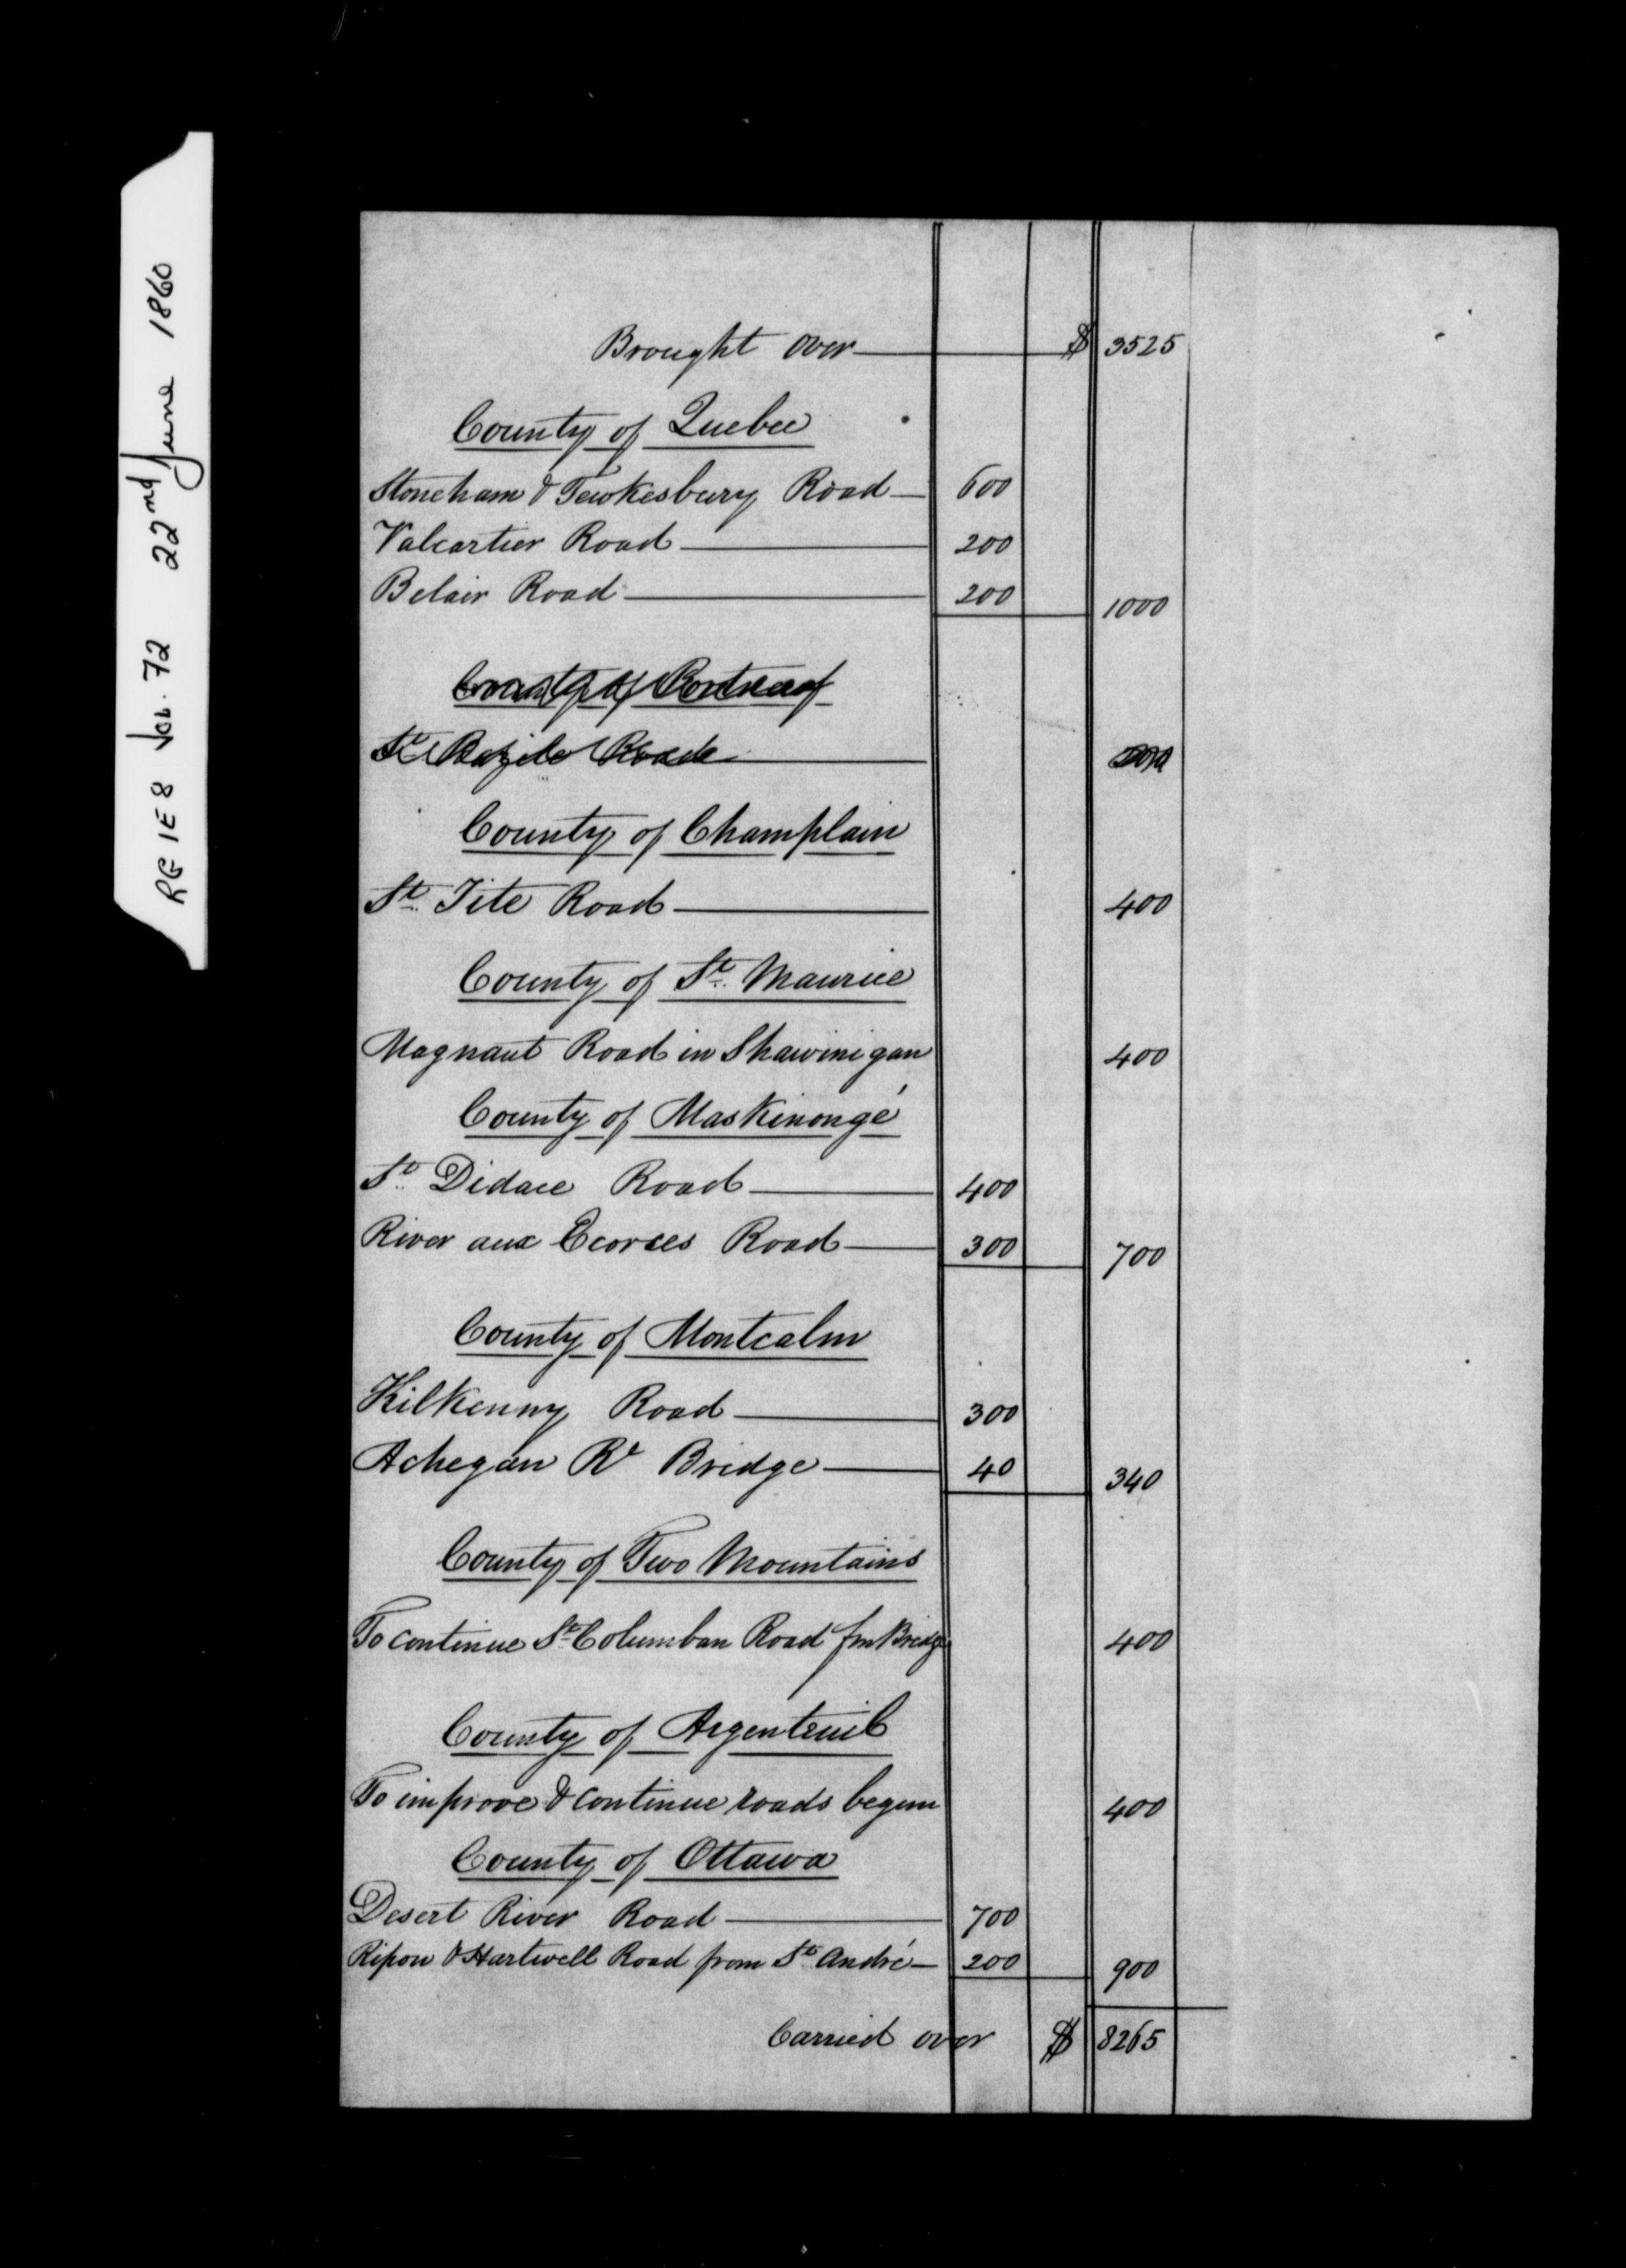 RG 1E8 Vol. 72 22nd June 1860
Brought over $ 3525
County of Quebec
Stoneham & Tewkesbury Road 600
Valcartier Road 200
Belair Road 200 1000
County of Portneuf
St Bazile Road
County of Champlain
St. Tite Road 400
County of St. Maurice
Magnant Road in Shawinigan 400
County of Maskinongé
St. Didace Road 400
River aux Ecorces Road 300 700
County of Montcalm
Kilkenny Road 300
Achegan Rr Bridge 40 340
County of Two Mountains
To continue St Columban Road fm Bridge 400
County of Argenteuil
To improve & continue roads begun 400
County of Ottawa
Desert River Road 700
Ripon & Hartwell Road from St André 200 900
Carried over $ 8265